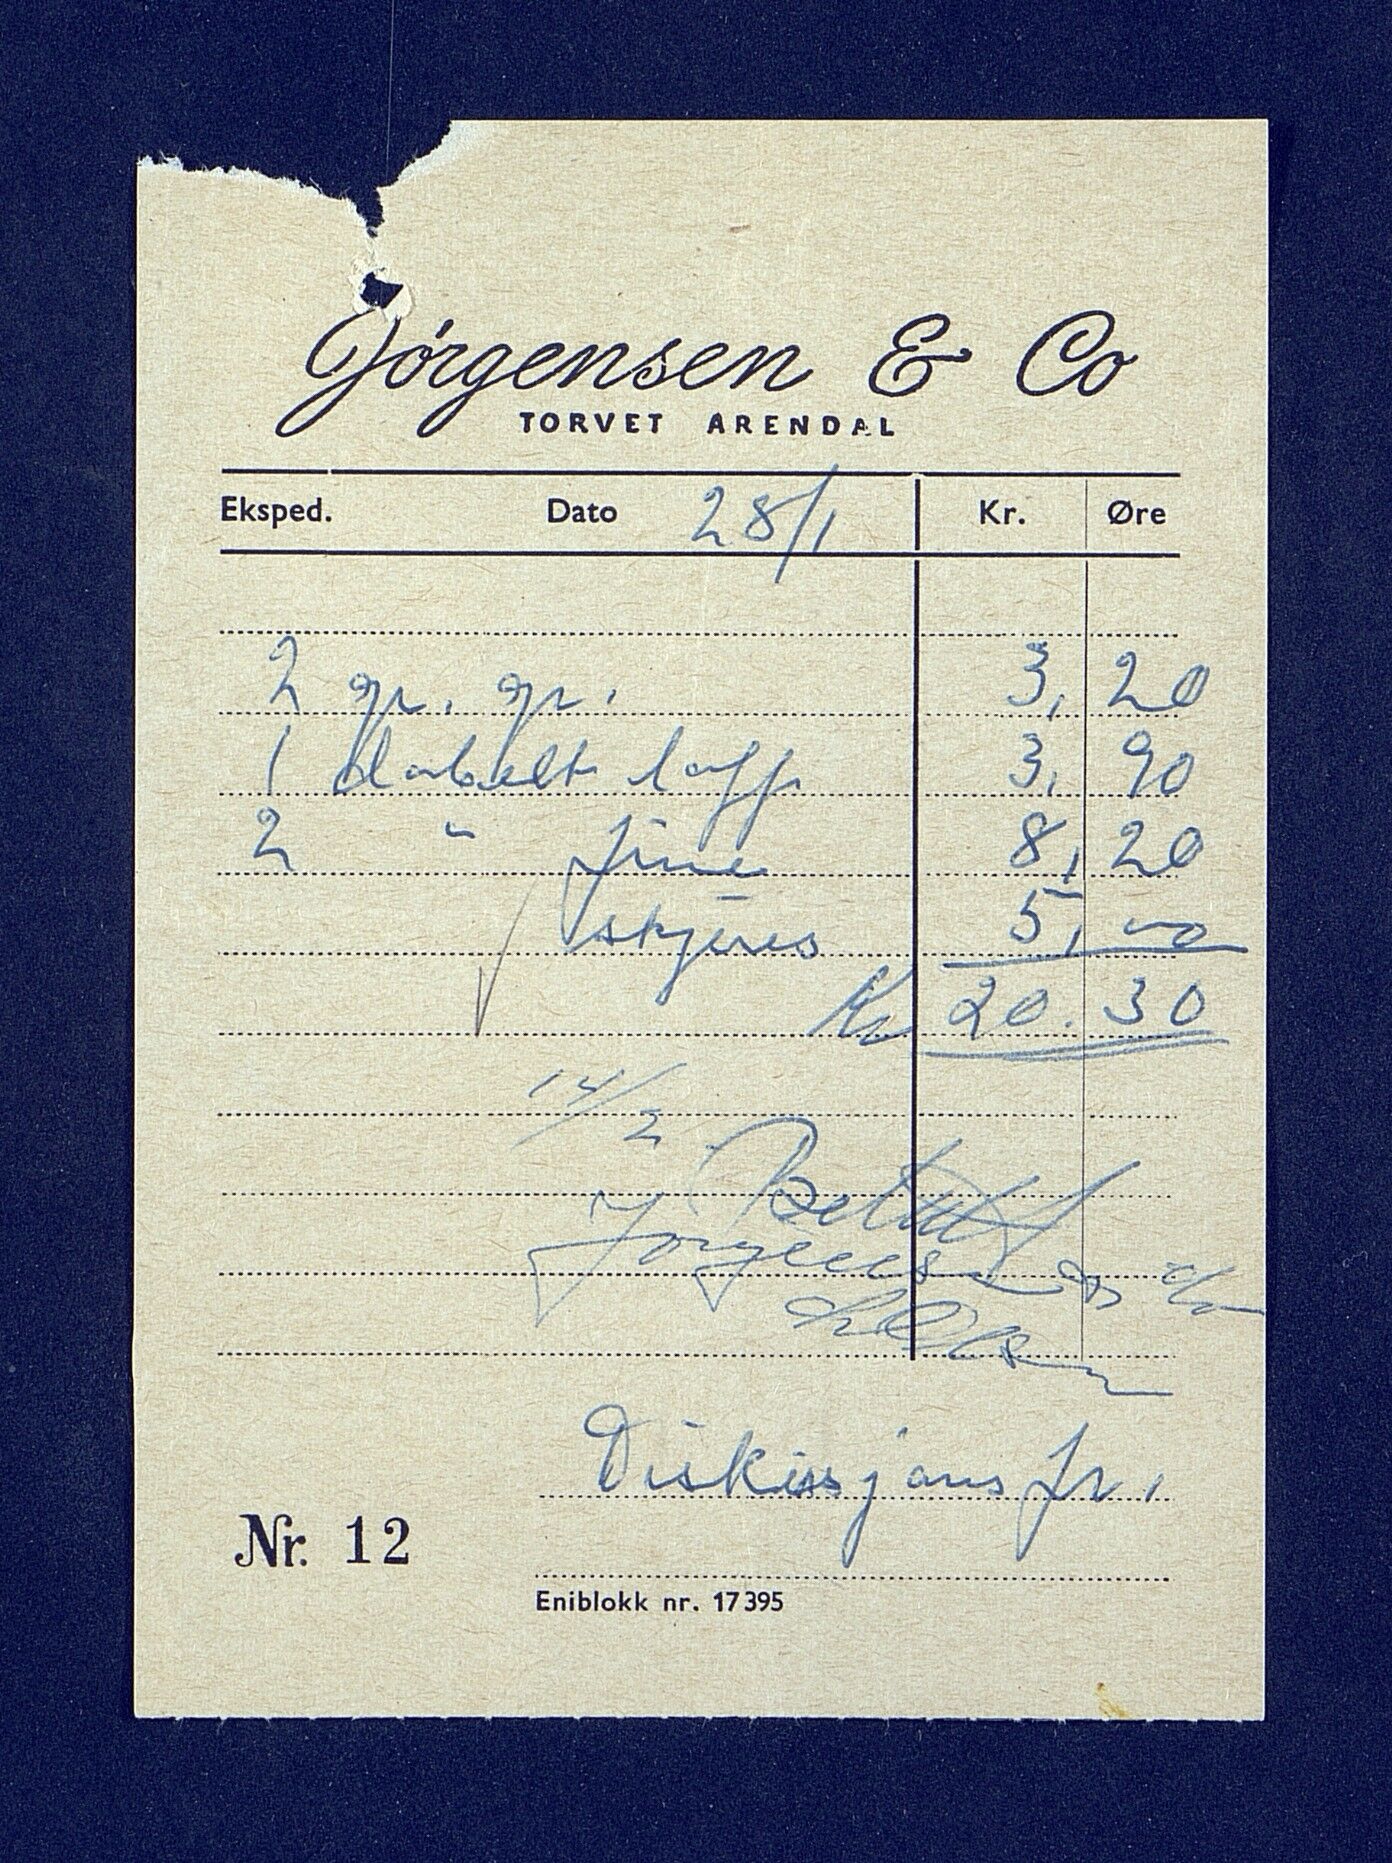 Jørgensen & Co
TORVET ARENDAL
Eksped. Dato 28/1 Kr. Øre
2 gr. gr. 3, 20
1 dobelt loff 3, 90
2 " fine 8, 20
skjæres 5, 00
Kr 20. 30
14/2
Betalt
Jørgensen & Co
Diskisjons fr.
Nr. 12
Eniblokk nr. 17395